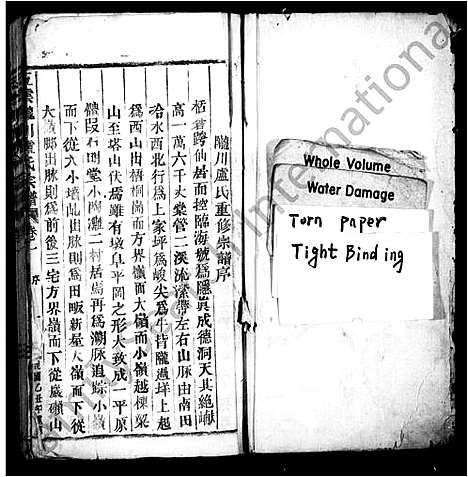 隴川盧氏重修宗譜序
栝蒼跨仙居面控臨海號為隱眞成德洞天其絶巘
高一萬六千丈棠管二溪流瀠帶左右山脉由南田
合水西北行為上家坪為峻尖為牛背隴過坪上起
為西山出梧桐嵐而方界嶺而大嶺而小嶺越棟梁
山至塔山伏焉雖有墩阜平岡之形大致成一平原
體段石明堂小灣灘二村居焉再為潮脉追踪小嶺
而下從大小墙乢出脉則為田畈新屋大嶺而下從
大坑脚出脉則為前後三宅方界嶺而下從處嶺山
隴川盧氏宗譜
卷之
序
一
民國乙丑年
Whole Volume
Water Damage
Torn paper
Tight Binding
International